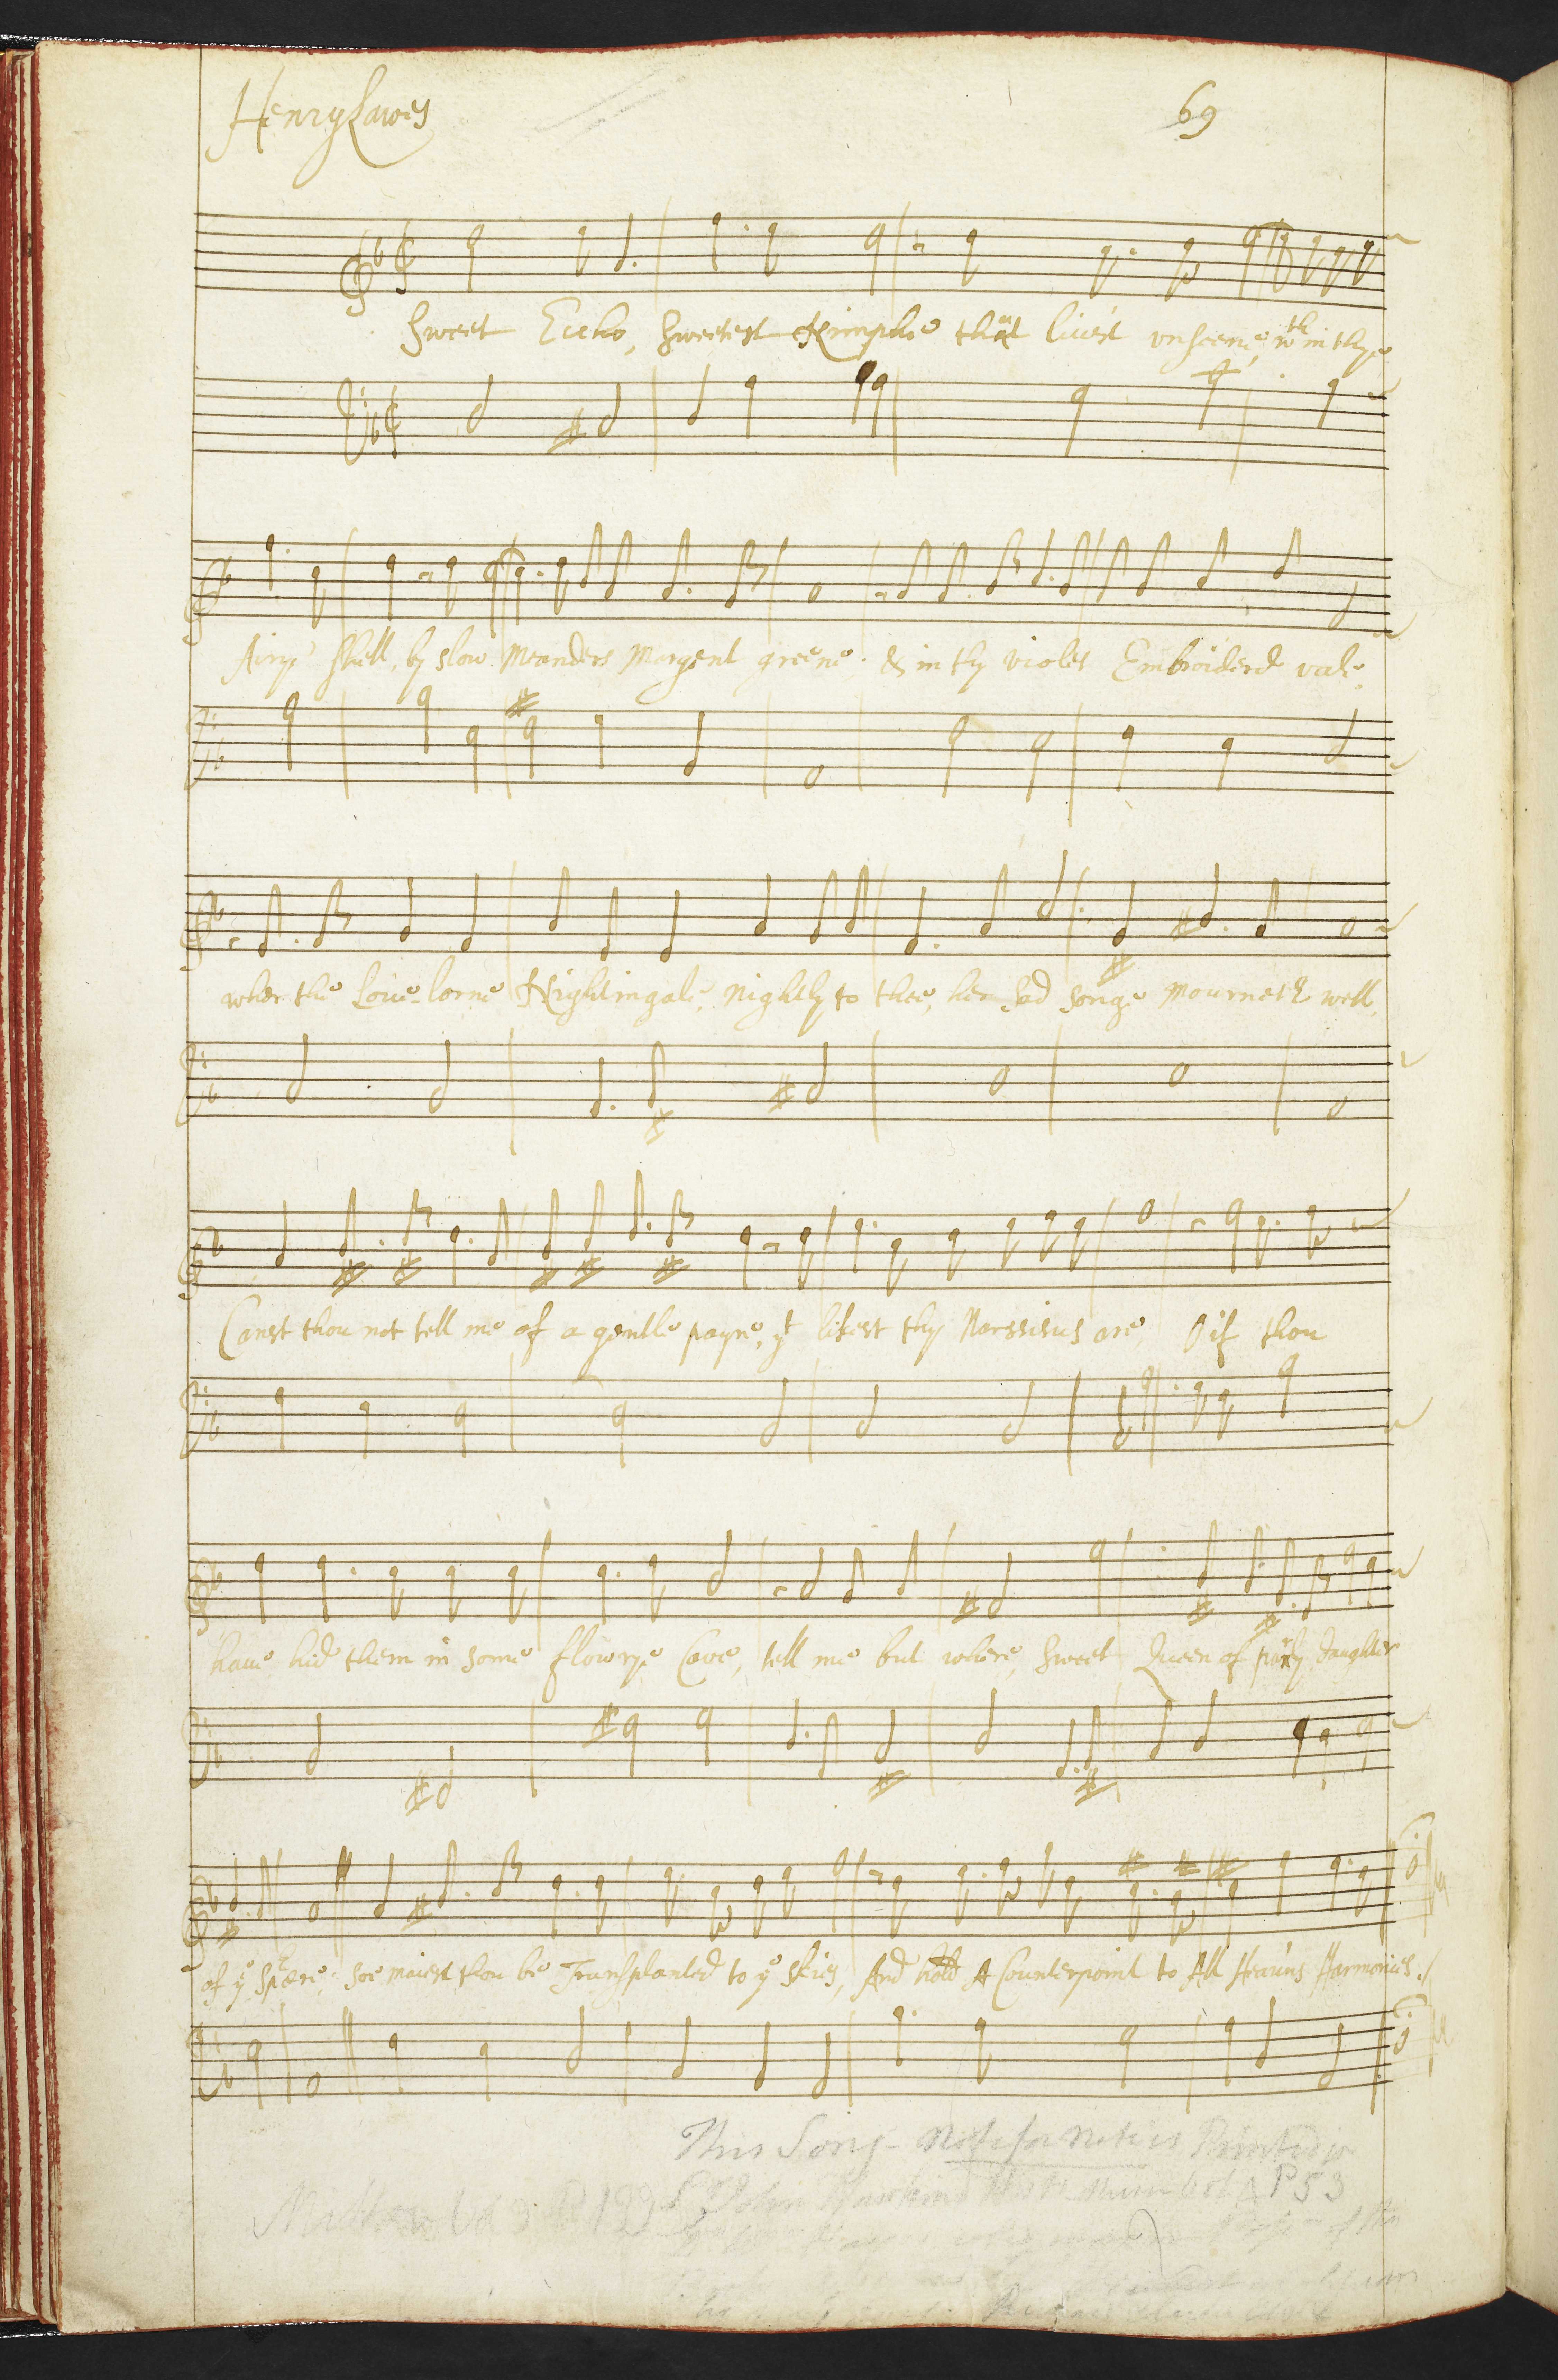 Henry Lawes
69
Sweet Eccho, Sweetest Nimphe that liu'st vnseene, wth in thy
Airye shell, by slow Meanders Margent greene, & in thy violet Embroiderd vale,
wher the Loue-lorne Nightingale, nightly to thee, her sad songe Mourneth well,
Canst thou not tell me of a gentle payre, yt likest thy Narssisus are, O if thou
haue hid them in some flowrye Cave, tell me but where, Sweet Queen of parly, Daughter
of ye Sphære, soe maiest thou be Transplanted to ye skies, And hold A Counterpoint to All Heau'ns Harmonies./
This Song - Note for Note is Printed in
Sr John Hawkins Hist P 53